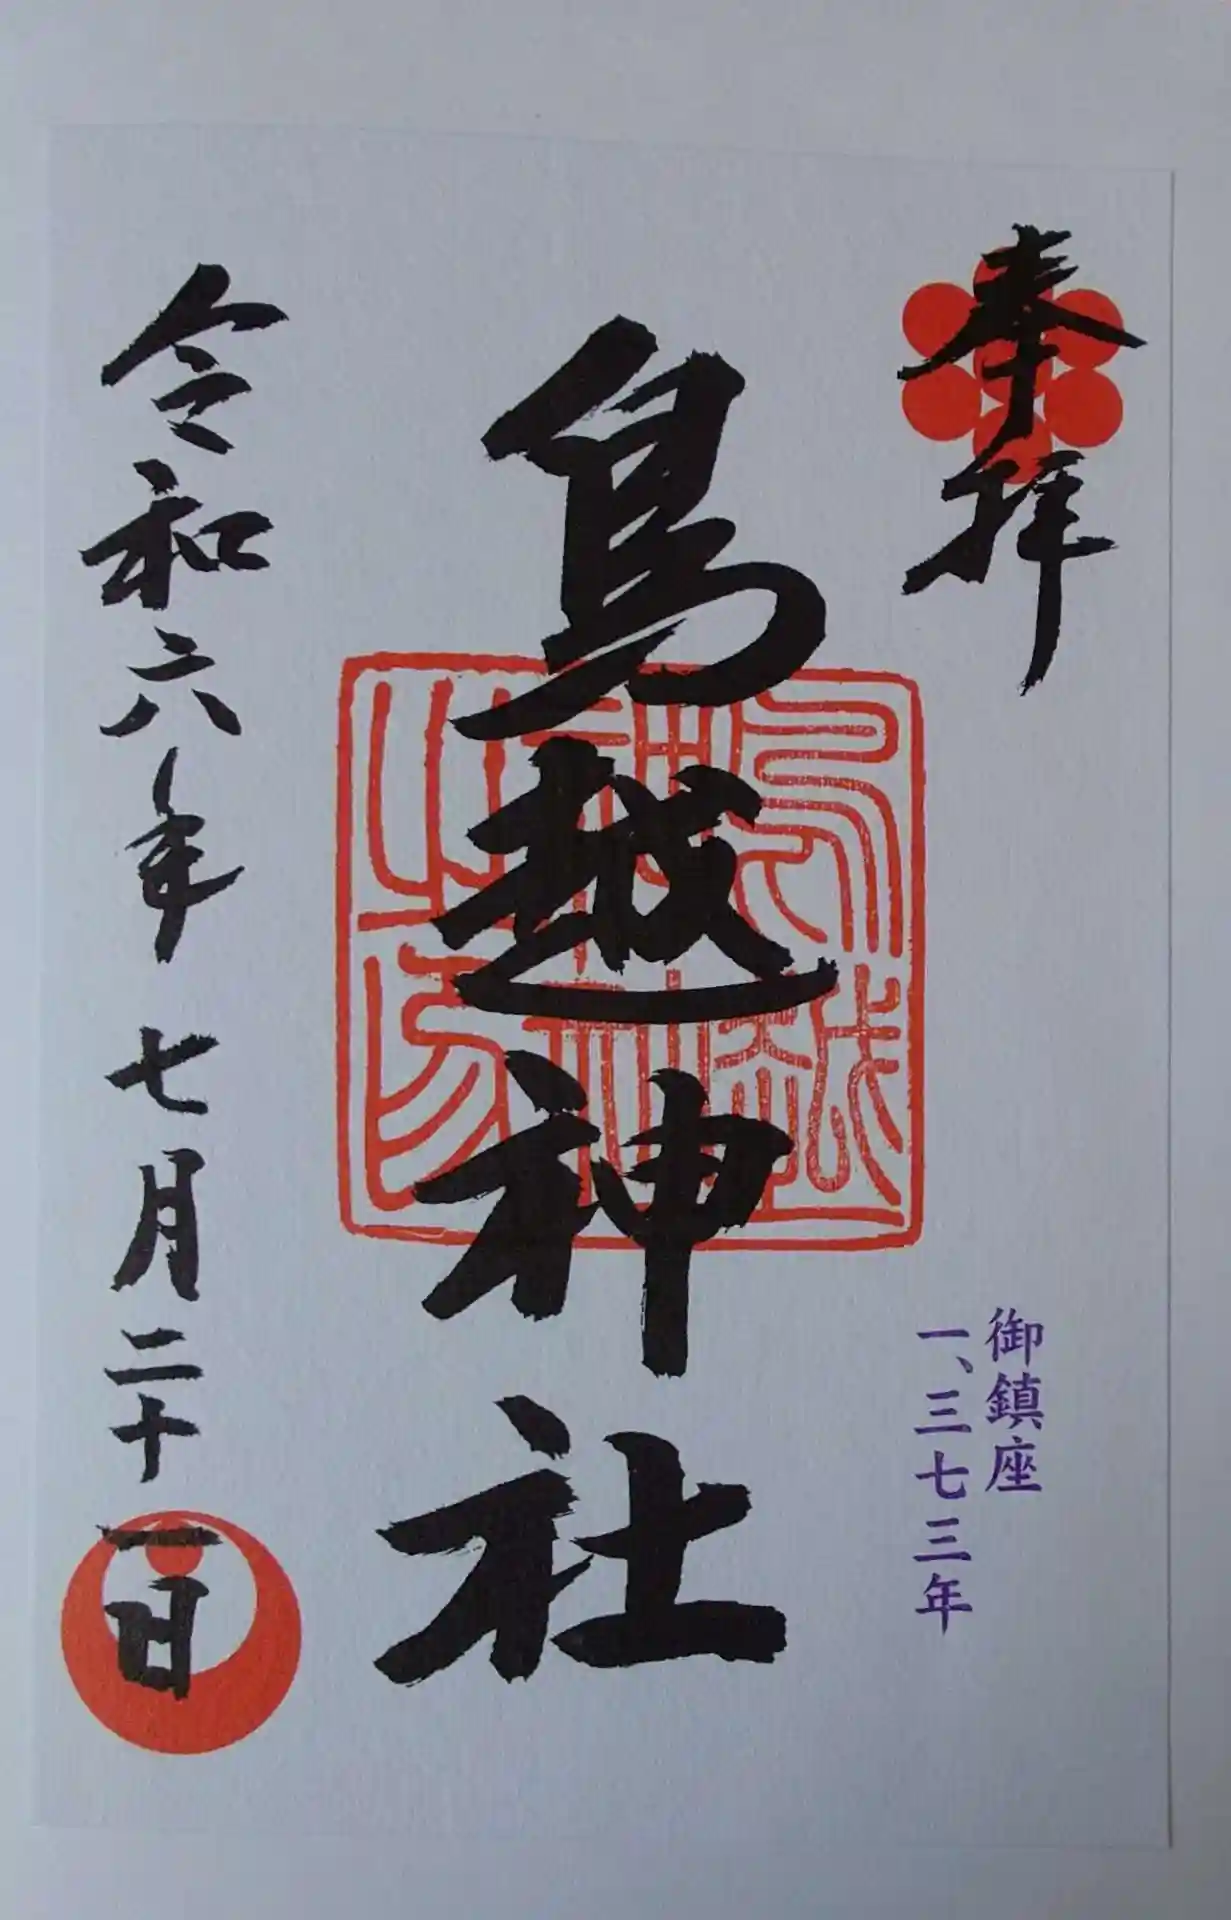 奉拝
御鎮座
一、三七三年
鳥越神社
鳥越
神社
之印
令和六年 七月二十一日